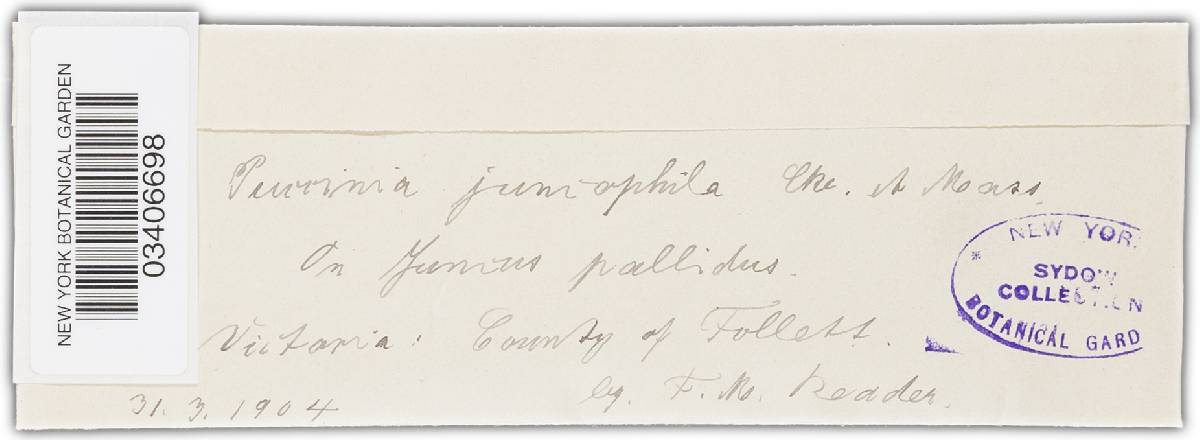 NEW YORK BOTANICAL GARDEN
03406698
Puccinia juncophila Cke. & Mass.
On Juncus pallidus.
Victoria: County of Follett.
31.3.1904
leg. F. M. Reader.
NEW YOR
* SYDOW
COLLECTION
BOTANICAL GARD